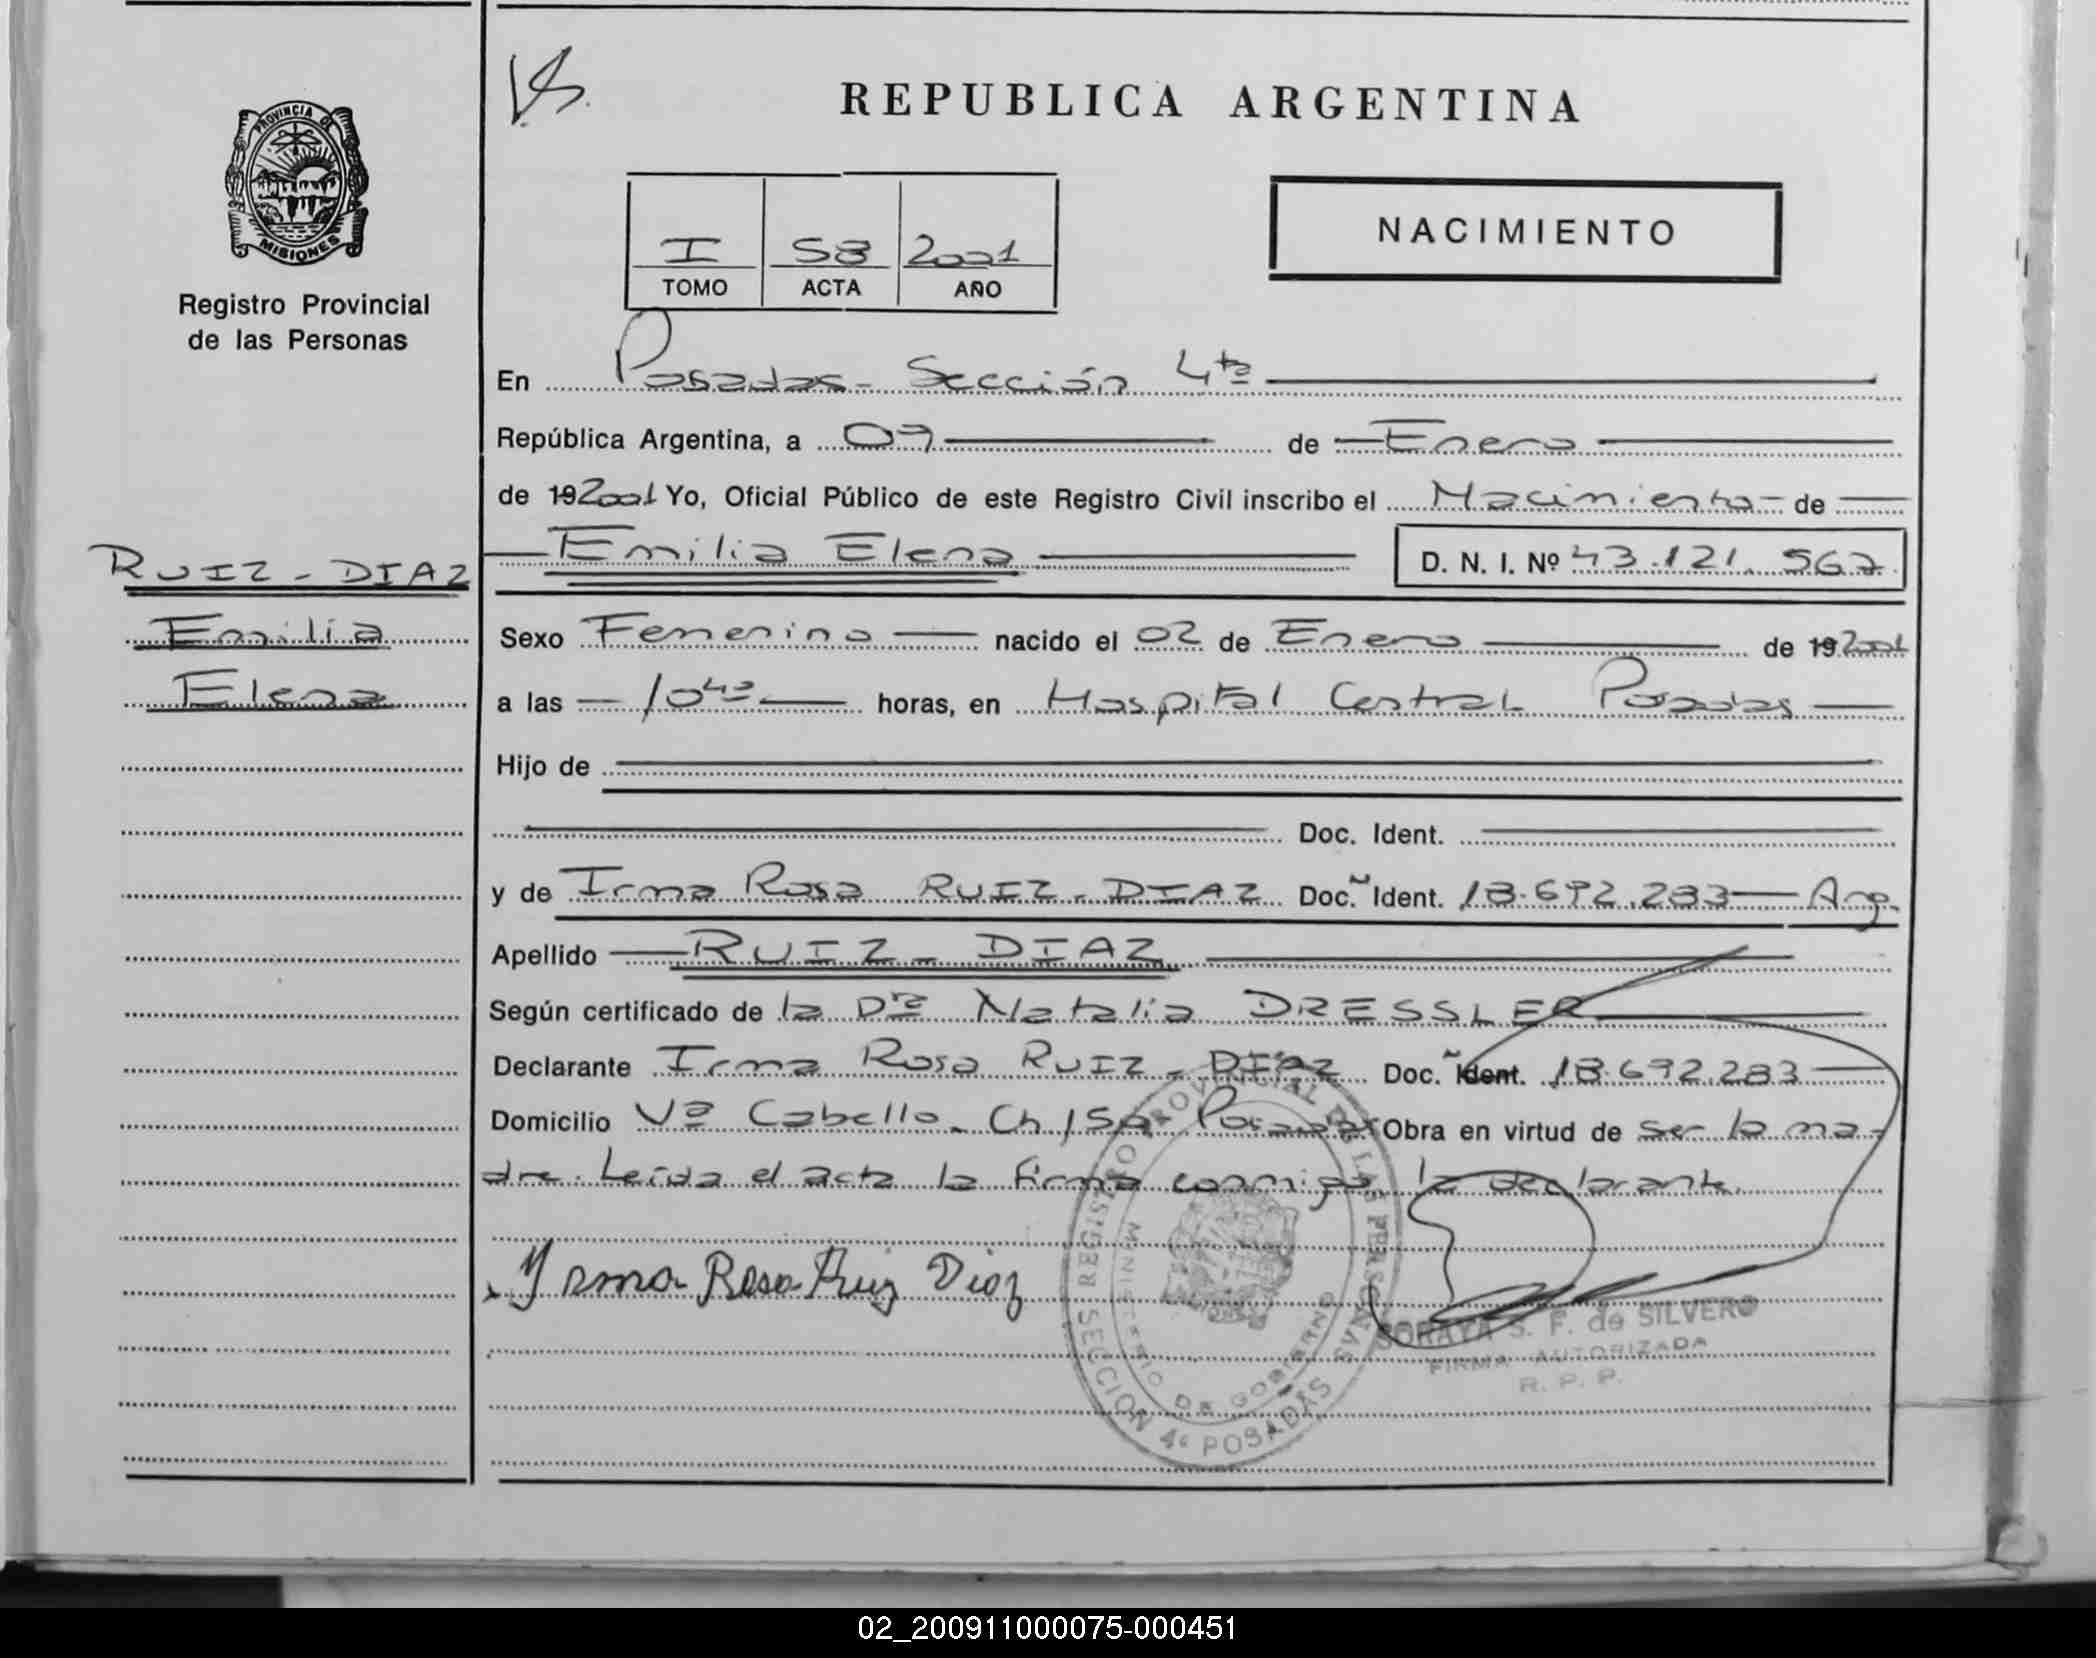 REPUBLICA ARGENTINA
PROVINCIA DE
MISIONES
Registro Provincial
de las Personas
I 58 2001
TOMO ACTA AÑO
NACIMIENTO
En Posadas - Sección 4ta
República Argentina, a 07 de Enero
de 19 2001 Yo, Oficial Público de este Registro Civil inscribo el Nacimiento de
Emilia Elena D. N. I. Nº 43.121.567
RUIZ - DIAZ
Emilia
Elena
Sexo Femenino nacido el 02 de Enero de 19 2001
a las 10 40 horas, en Hospital Central Posadas
Hijo de
Doc. Ident.
y de Irma Rosa RUIZ - DIAZ Doc. Ident. 18.692.283 Arg.
Apellido RUIZ - DIAZ
Según certificado de la Dra Natalia DRESSLER
Declarante Irma Rosa RUIZ - DIAZ Doc. Ident. 18.692.283
Domicilio Va Cabello - Ch 150 Posadas Obra en virtud de ser la ma-
dre. Leida el acta la firma conmigo la declarante.
Yrma Rosa Ruiz Diaz
REGISTRO PROVINCIAL DE LAS PERSONAS
MINISTERIO DE GOBIERNO
SECCION 4ª POSADAS
SORAYA S. F. de SILVERO
FIRMA AUTORIZADA
R. P. P.
02_200911000075-000451